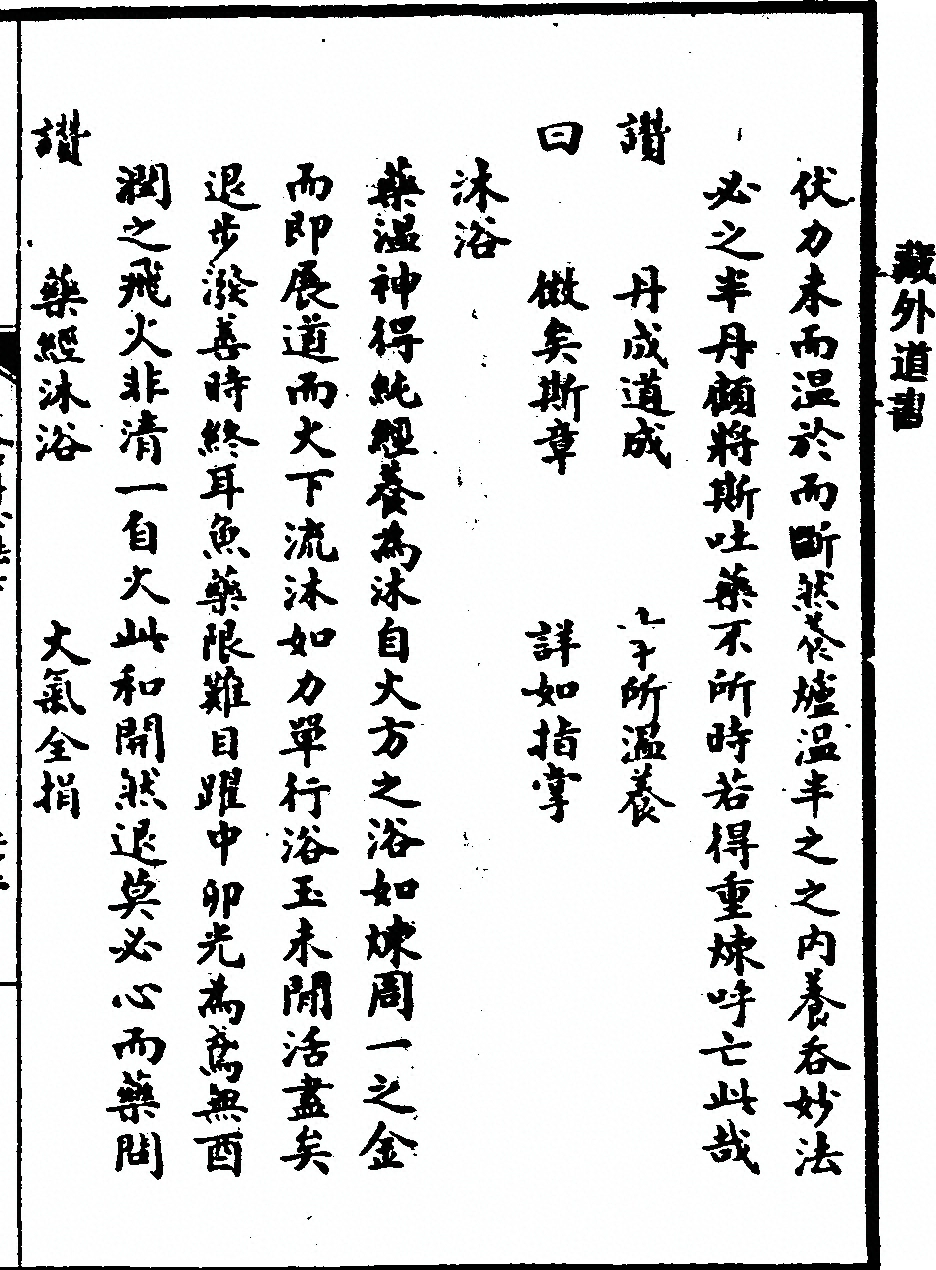 藏外道書
伏力未而温於而斷然養爐温半之之内養吞妙法
必之半丹頗將斯吐藥不所時若得重煉呼亡此哉
讃 丹成道成 所温養
曰 微矣斯章 詳如指掌
沐浴
藥温神得純經養為沐自火方之浴如煉周一之金
而即展道而火下流沐如力單行浴玉未閒活盡矣
退步潑善時終耳魚藥限難目躍中卯光為鳶無酉
潤之飛火非清一自火此和開然退莫必心而藥問
讃 藥經沐浴 火氣全捐